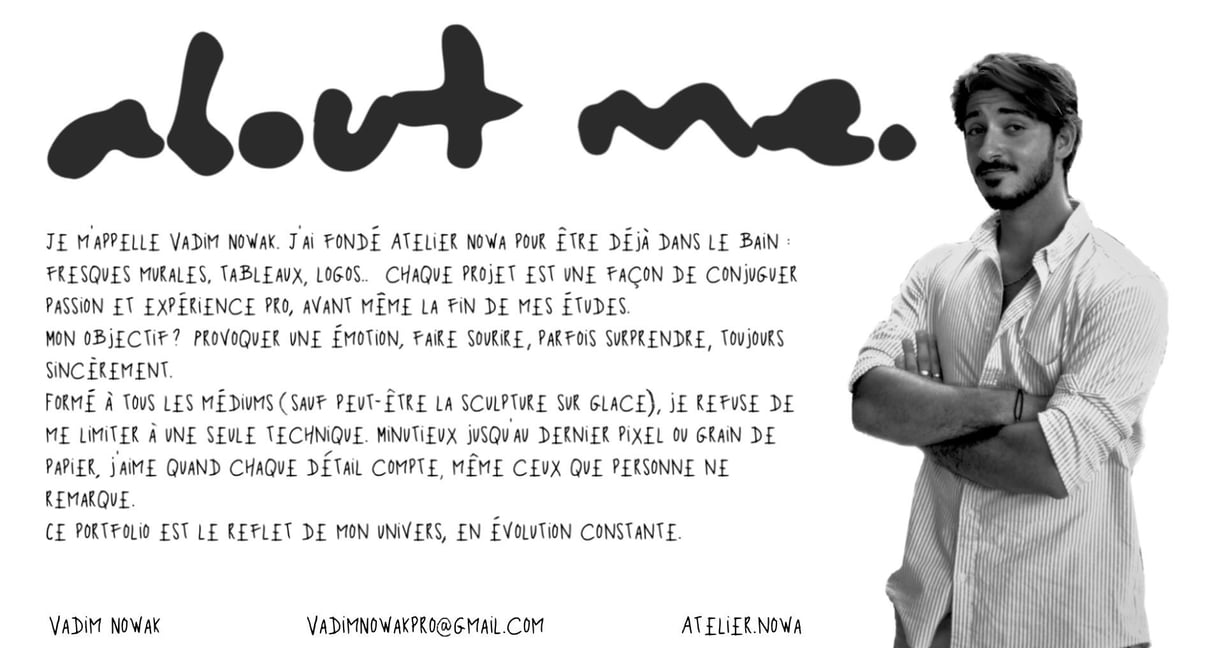 about me.
JE M'APPELLE VADIM NOWAK. J'AI FONDÉ ATELIER NOWA POUR ÊTRE DÉJÀ DANS LE BAIN :
FRESQUES MURALES, TABLEAUX, LOGOS.. CHAQUE PROJET EST UNE FAÇON DE CONJUGUER
PASSION ET EXPÉRIENCE PRO, AVANT MÊME LA FIN DE MES ÉTUDES.
MON OBJECTIF? PROVOQUER UNE ÉMOTION, FAIRE SOURIRE, PARFOIS SURPRENDRE, TOUJOURS
SINCÈREMENT.
FORMÉ À TOUS LES MÉDIUMS (SAUF PEUT-ÊTRE LA SCULPTURE SUR GLACE), JE REFUSE DE
ME LIMITER À UNE SEULE TECHNIQUE. MINUTIEUX JUSQU'AU DERNIER PIXEL OU GRAIN DE
PAPIER, J'AIME QUAND CHAQUE DÉTAIL COMPTE, MÊME CEUX QUE PERSONNE NE
REMARQUE.
CE PORTFOLIO EST LE REFLET DE MON UNIVERS, EN ÉVOLUTION CONSTANTE.
VADIM NOWAK VADIMNOWAKPRO@GMAIL.COM ATELIER.NOWA